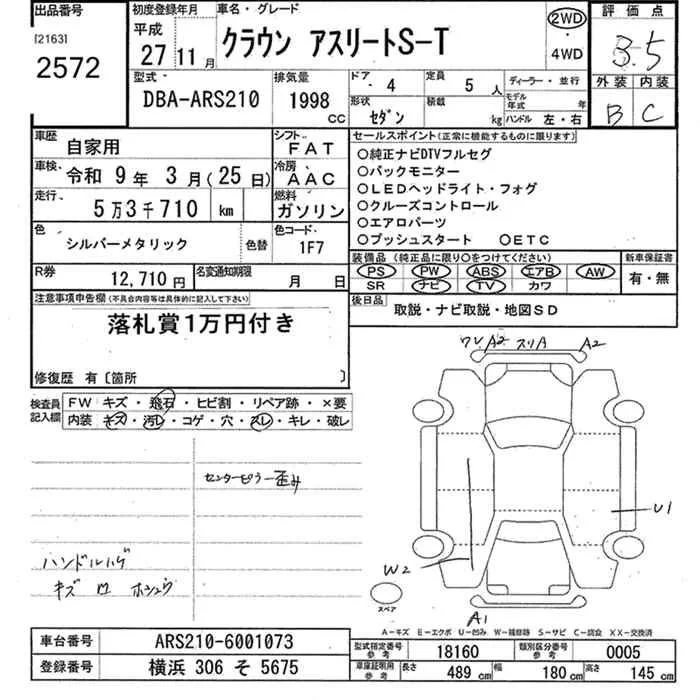 出品番号
[2163]
2572
初度登録年月
平成
27 11月
車名・グレード
クラウン アスリートS-T
2WD
・
4WD
評価点
3.5
外装 内装
B C
型式
DBA-ARS210
排気量
1998
CC
ドア・ 4
定員 5 人
形状 セダン
積載 kg
ディーラー・並行
モデル年式 年
ハンドル 左・右
車歴 自家用
シフト FAT
車検、令和 9年 3月(25日)
冷房 AAC
走行、5万3千710 km
燃料 ガソリン
色 シルバーメタリック
色替
色コード・ 1F7
R券 12,710円
名変通知期限 月 日
セールスポイント(正常に機能するものに限ります)
○純正ナビDTVフルセグ
○バックモニター
○LEDヘッドライト・フォグ
○クルーズコントロール
○エアロパーツ
○プッシュスタート ○ETC
装備品 (純正品に限り○をつけてください)
PS PW ABS エアB AW
SR ナビ TV カワ
新車保証書
有・無
後日品
取説・ナビ取説・地図SD
注意事項申告欄(不具合内容等は具体的に記入して下さい)
落札賞1万円付き
修復歴 有〔箇所 〕
検査員記入欄
FW キズ・飛石・ヒビ割・リペア跡・×要
内装 キズ・汚レ・コゲ・穴・スレ・キレ・破レ
センターピラー歪み
ハンドルハゲ
キズ 凹
ワレA2 スリA A2
U1
W2
A1
スペア
A-キズ E-エクボ U-凹み W-補修跡 S-サビ C-腐食 XX-交換済
車台番号 ARS210-6001073
登録番号 横浜 306 そ 5675
型式指定番号 参考 18160
類別区分番号 参考 0005
車庫証明用 参考 長さ 489 cm 幅 180 cm 高さ 145 cm